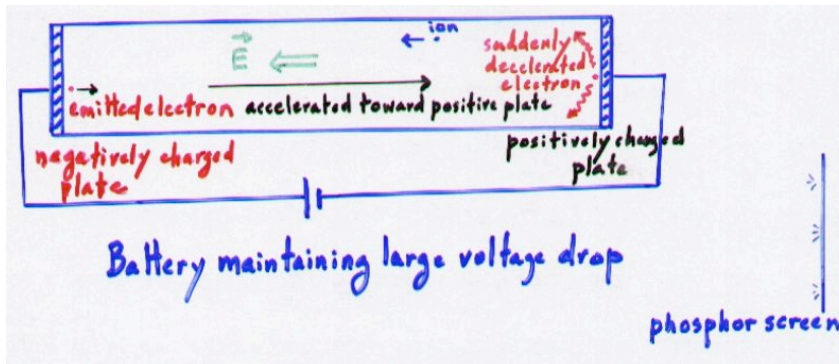 ion
E
suddenly
decelerated
electron
emitted electron accelerated toward positive plate
negatively charged
plate
positively charged
plate
Battery maintaining large voltage drop
phosphor screen